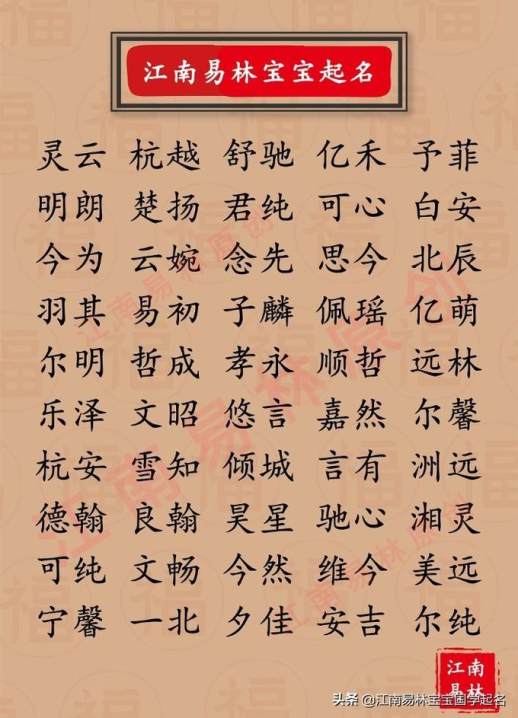 江南易林宝宝起名
灵云 杭越 舒驰 亿禾 予菲
明朗 楚扬 君纯 可心 白安
今为 云婉 念先 思今 北辰
羽其 易初 子麟 佩瑶 亿萌
尔明 哲成 孝永 顺哲 远林
乐泽 文昭 悠言 嘉然 尔馨
杭安 雪知 倾城 言有 洲远
德翰 良翰 昊星 驰心 湘灵
可纯 文畅 今然 维今 美远
宁馨 一北 夕佳 安吉 尔纯
江南易林原创
江南易林原创
江南易林原创
江南
易林
头条 @江南易林宝宝国学起名